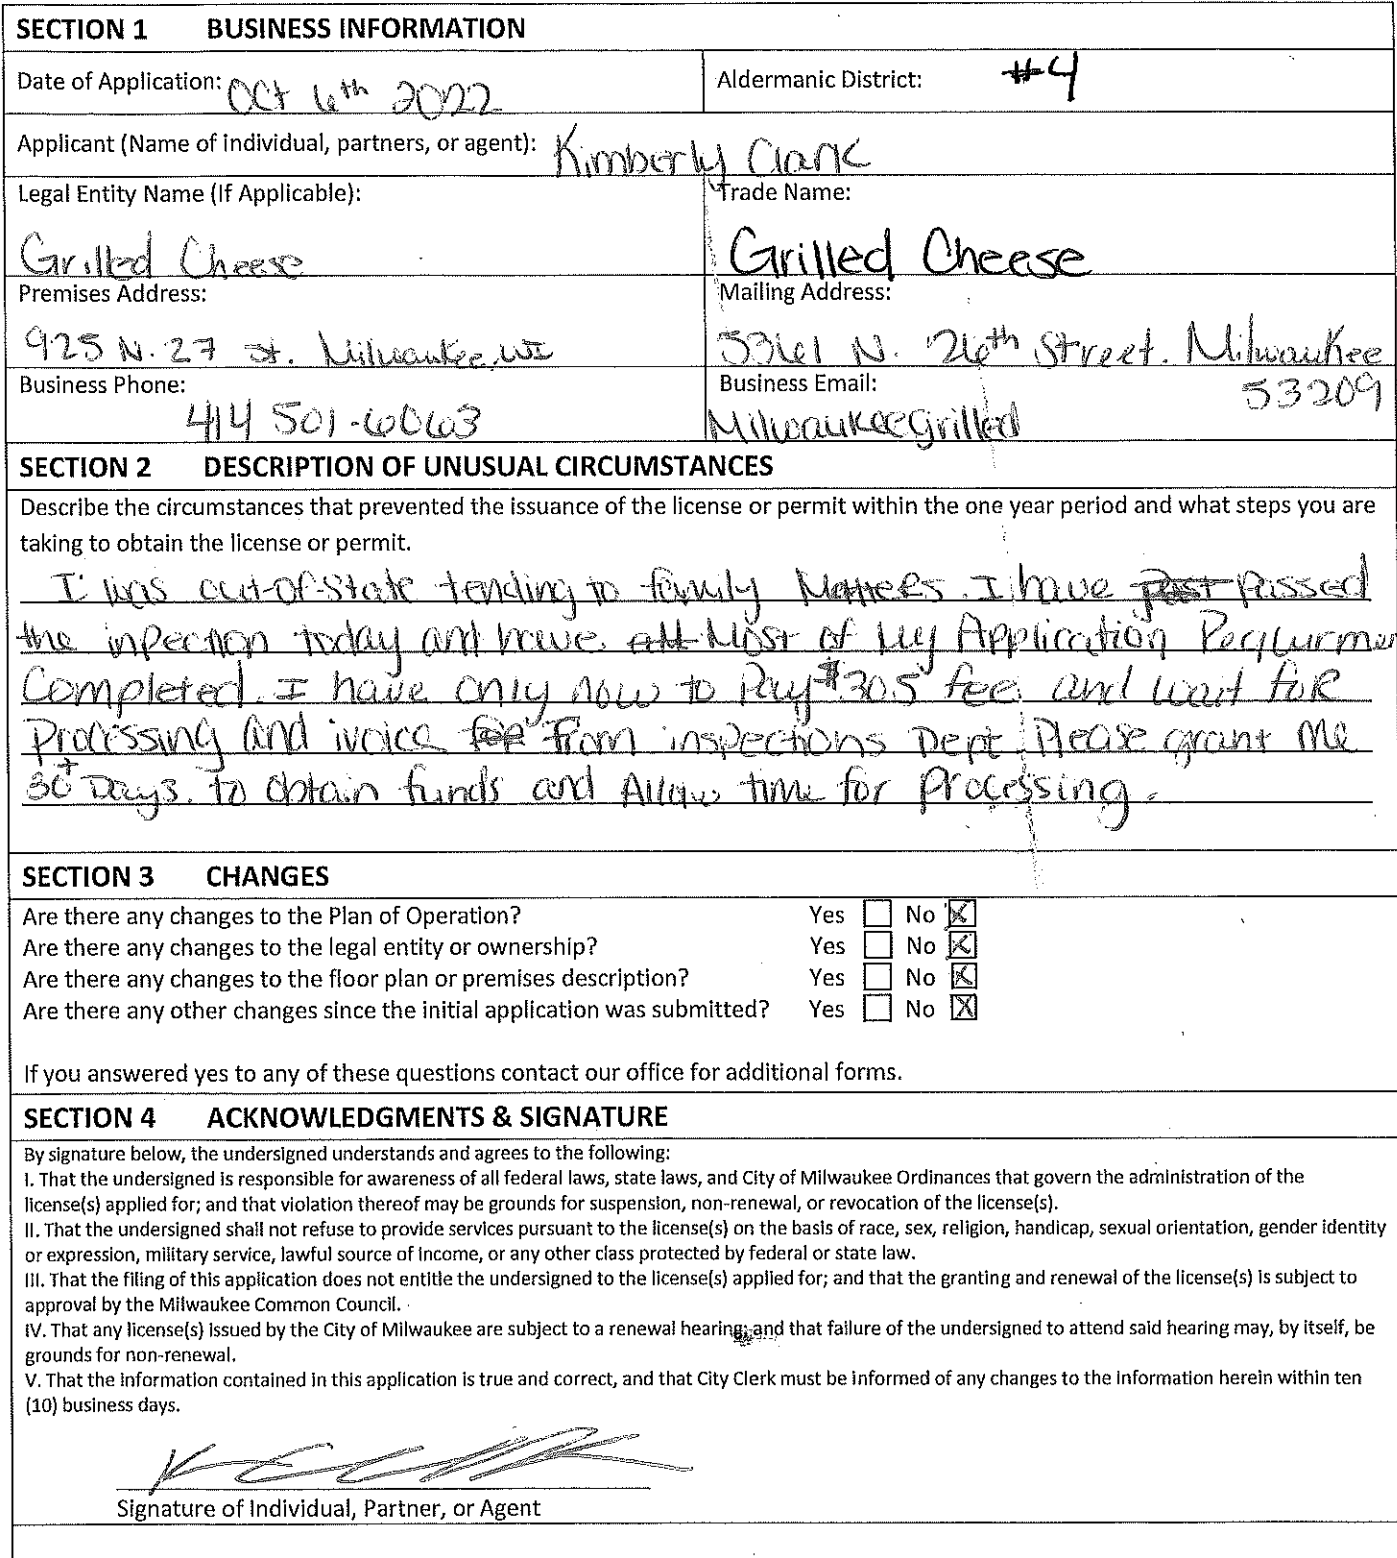 SECTION 1 BUSINESS INFORMATION
Date of Application: Oct 6th 2022 Aldermanic District: #4
Applicant (Name of individual, partners, or agent): Kimberly Clark
Legal Entity Name (If Applicable): Trade Name:
Grilled Cheese Grilled Cheese
Premises Address: Mailing Address:
925 N. 27 st. Milwaukee, WI 5361 N. 26th Street. Milwaukee
Business Phone: Business Email: 53209
414 501-6063 MilwaukeeGrilled
SECTION 2 DESCRIPTION OF UNUSUAL CIRCUMSTANCES
Describe the circumstances that prevented the issuance of the license or permit within the one year period and what steps you are
taking to obtain the license or permit.
I was out-of-State tending to family Matters. I have past passed
the inpection today and have all Most of My Application Requurmen
Completed. I have only now to Pay $305 fee. and wait foR
Processing and ivoice for From inspections Dept. Please grant Me
30+ Days. to obtain funds and Allow time for processing.
SECTION 3 CHANGES
Are there any changes to the Plan of Operation? Yes No X
Are there any changes to the legal entity or ownership? Yes No X
Are there any changes to the floor plan or premises description? Yes No X
Are there any other changes since the initial application was submitted? Yes No X
If you answered yes to any of these questions contact our office for additional forms.
SECTION 4 ACKNOWLEDGMENTS & SIGNATURE
By signature below, the undersigned understands and agrees to the following:
I. That the undersigned is responsible for awareness of all federal laws, state laws, and City of Milwaukee Ordinances that govern the administration of the
license(s) applied for; and that violation thereof may be grounds for suspension, non-renewal, or revocation of the license(s).
II. That the undersigned shall not refuse to provide services pursuant to the license(s) on the basis of race, sex, religion, handicap, sexual orientation, gender identity
or expression, military service, lawful source of income, or any other class protected by federal or state law.
III. That the filing of this application does not entitle the undersigned to the license(s) applied for; and that the granting and renewal of the license(s) is subject to
approval by the Milwaukee Common Council.
IV. That any license(s) issued by the City of Milwaukee are subject to a renewal hearing; and that failure of the undersigned to attend said hearing may, by itself, be
grounds for non-renewal.
V. That the information contained in this application is true and correct, and that City Clerk must be informed of any changes to the information herein within ten
(10) business days.
Signature of Individual, Partner, or Agent